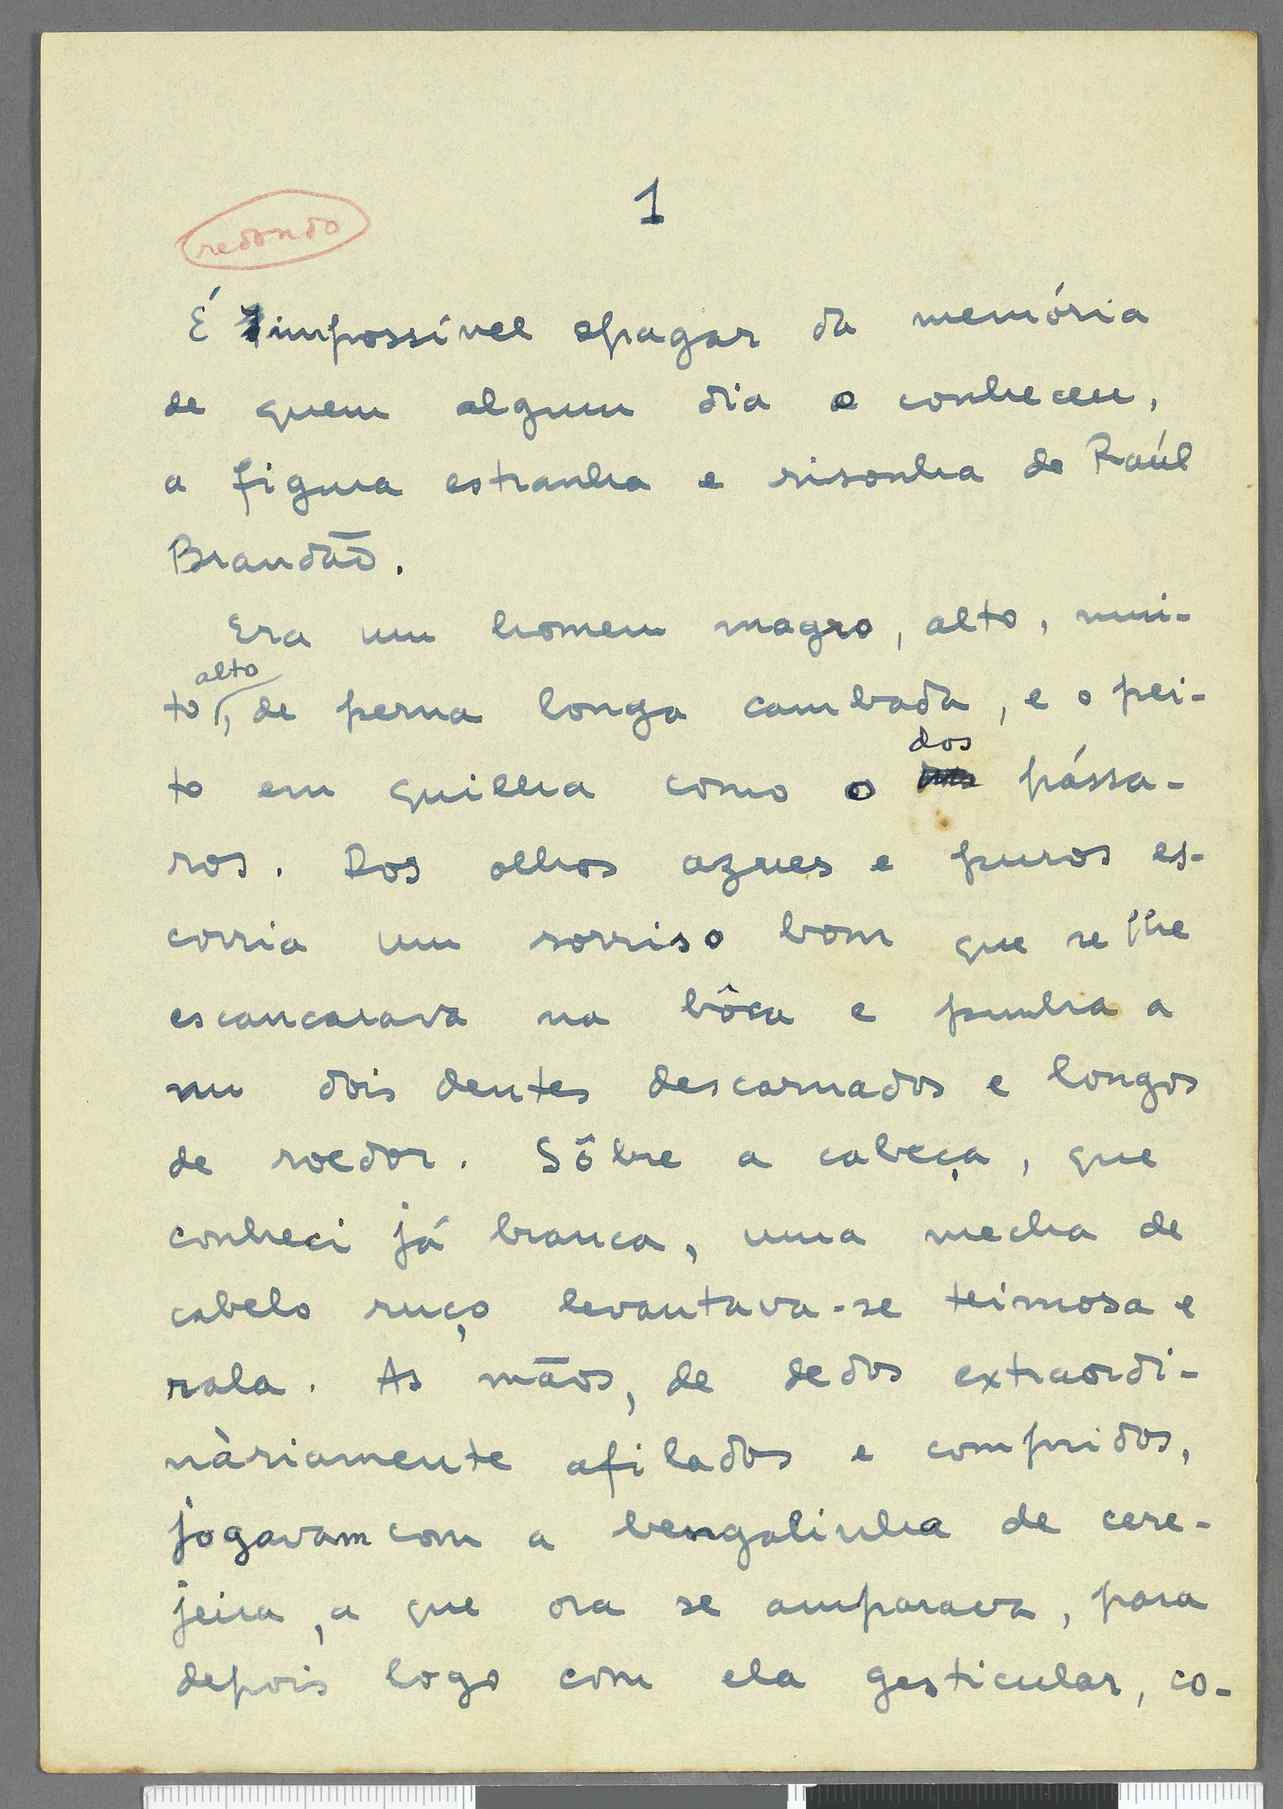 1
redondo
É impossível apagar da memória
de quem algum dia o conheceu,
a figura estranha e risonha de Raúl
Brandão.
Era um homem magro, alto, mui-
alto
to, de perna longa cambada, e o pei-
dos
to em quilha como o pássa-
ros. Dos olhos azues e puros es-
corria um sorriso bom que se lhe
escancarava na bôca e punha a
nu dois dentes descarnados e longos
de roedor. Sôbre a cabeça, que
conheci já branca, uma mecha de
cabelo ruço levantava-se teimosa e
rala. As mãos, de dedos extraordi-
nàriamente afilados e compridos,
jogavam com a bengalinha de cere-
jeira, a que ora se amparava, para
depois logo com ela gesticular, co-